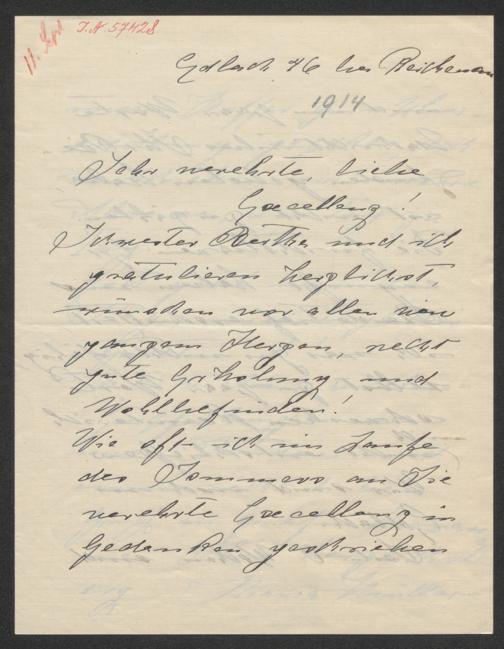 11. Sept J.N. 57428
Edlach 76 bei Reichenau
1914
Sehr verehrte, liebe
Excellenz!
Schwester Bertha und ich
gratulieren herzlichst,
wünschen vor allem von
ganzem Herzen, recht
gute Erholung und
Wohlbefinden!
Wie oft ich im Laufe
des Sommers an Sie
verehrte Excellenz in
Gedanken geschrieben